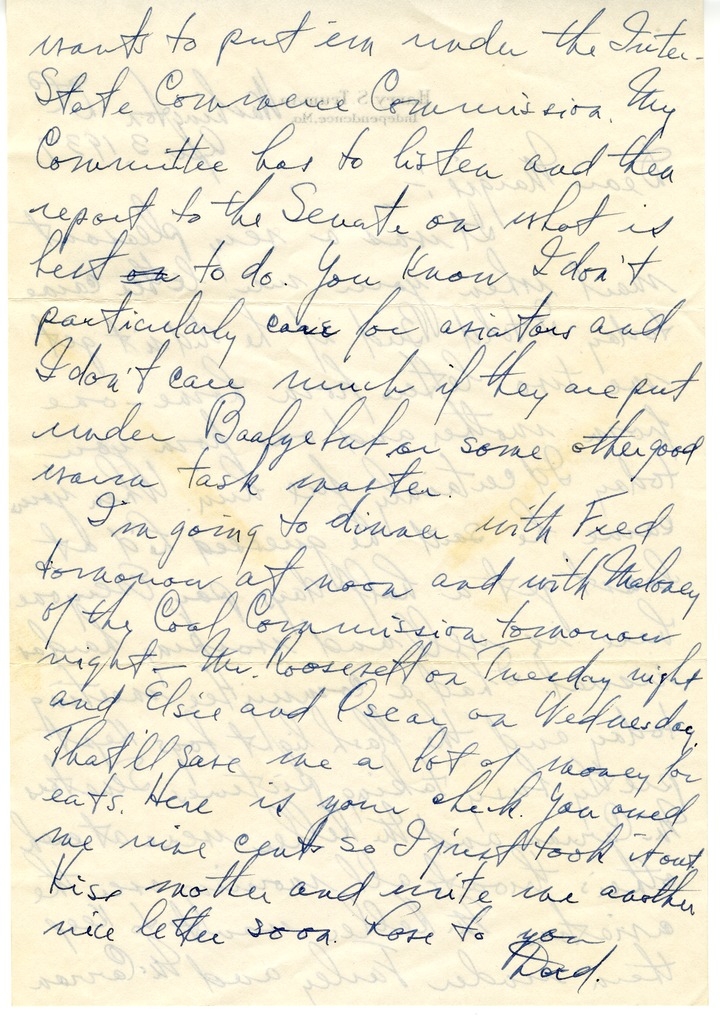 wants to put em under the Inter-
State Commerce Commission. My
Committee has to listen and then
report to the Senate on what is
best on to do. You know I don't
particularly care for aviators and
I don't care much if they are put
under or some other good
warm task master.
I'm going to dinner with Fred
tomorrow at noon and with Maloney
of the Coal Commission tomorrow
night - Mr. Roosevelt on Tuesday night
and Elsie and Oscar on Wednesday.
That'll save me a lot of money for
eats. Here is your check. You owed
me nine cents so I just took it out.
Kiss mother and write me another
nice letter soon. Love to you
Dad.